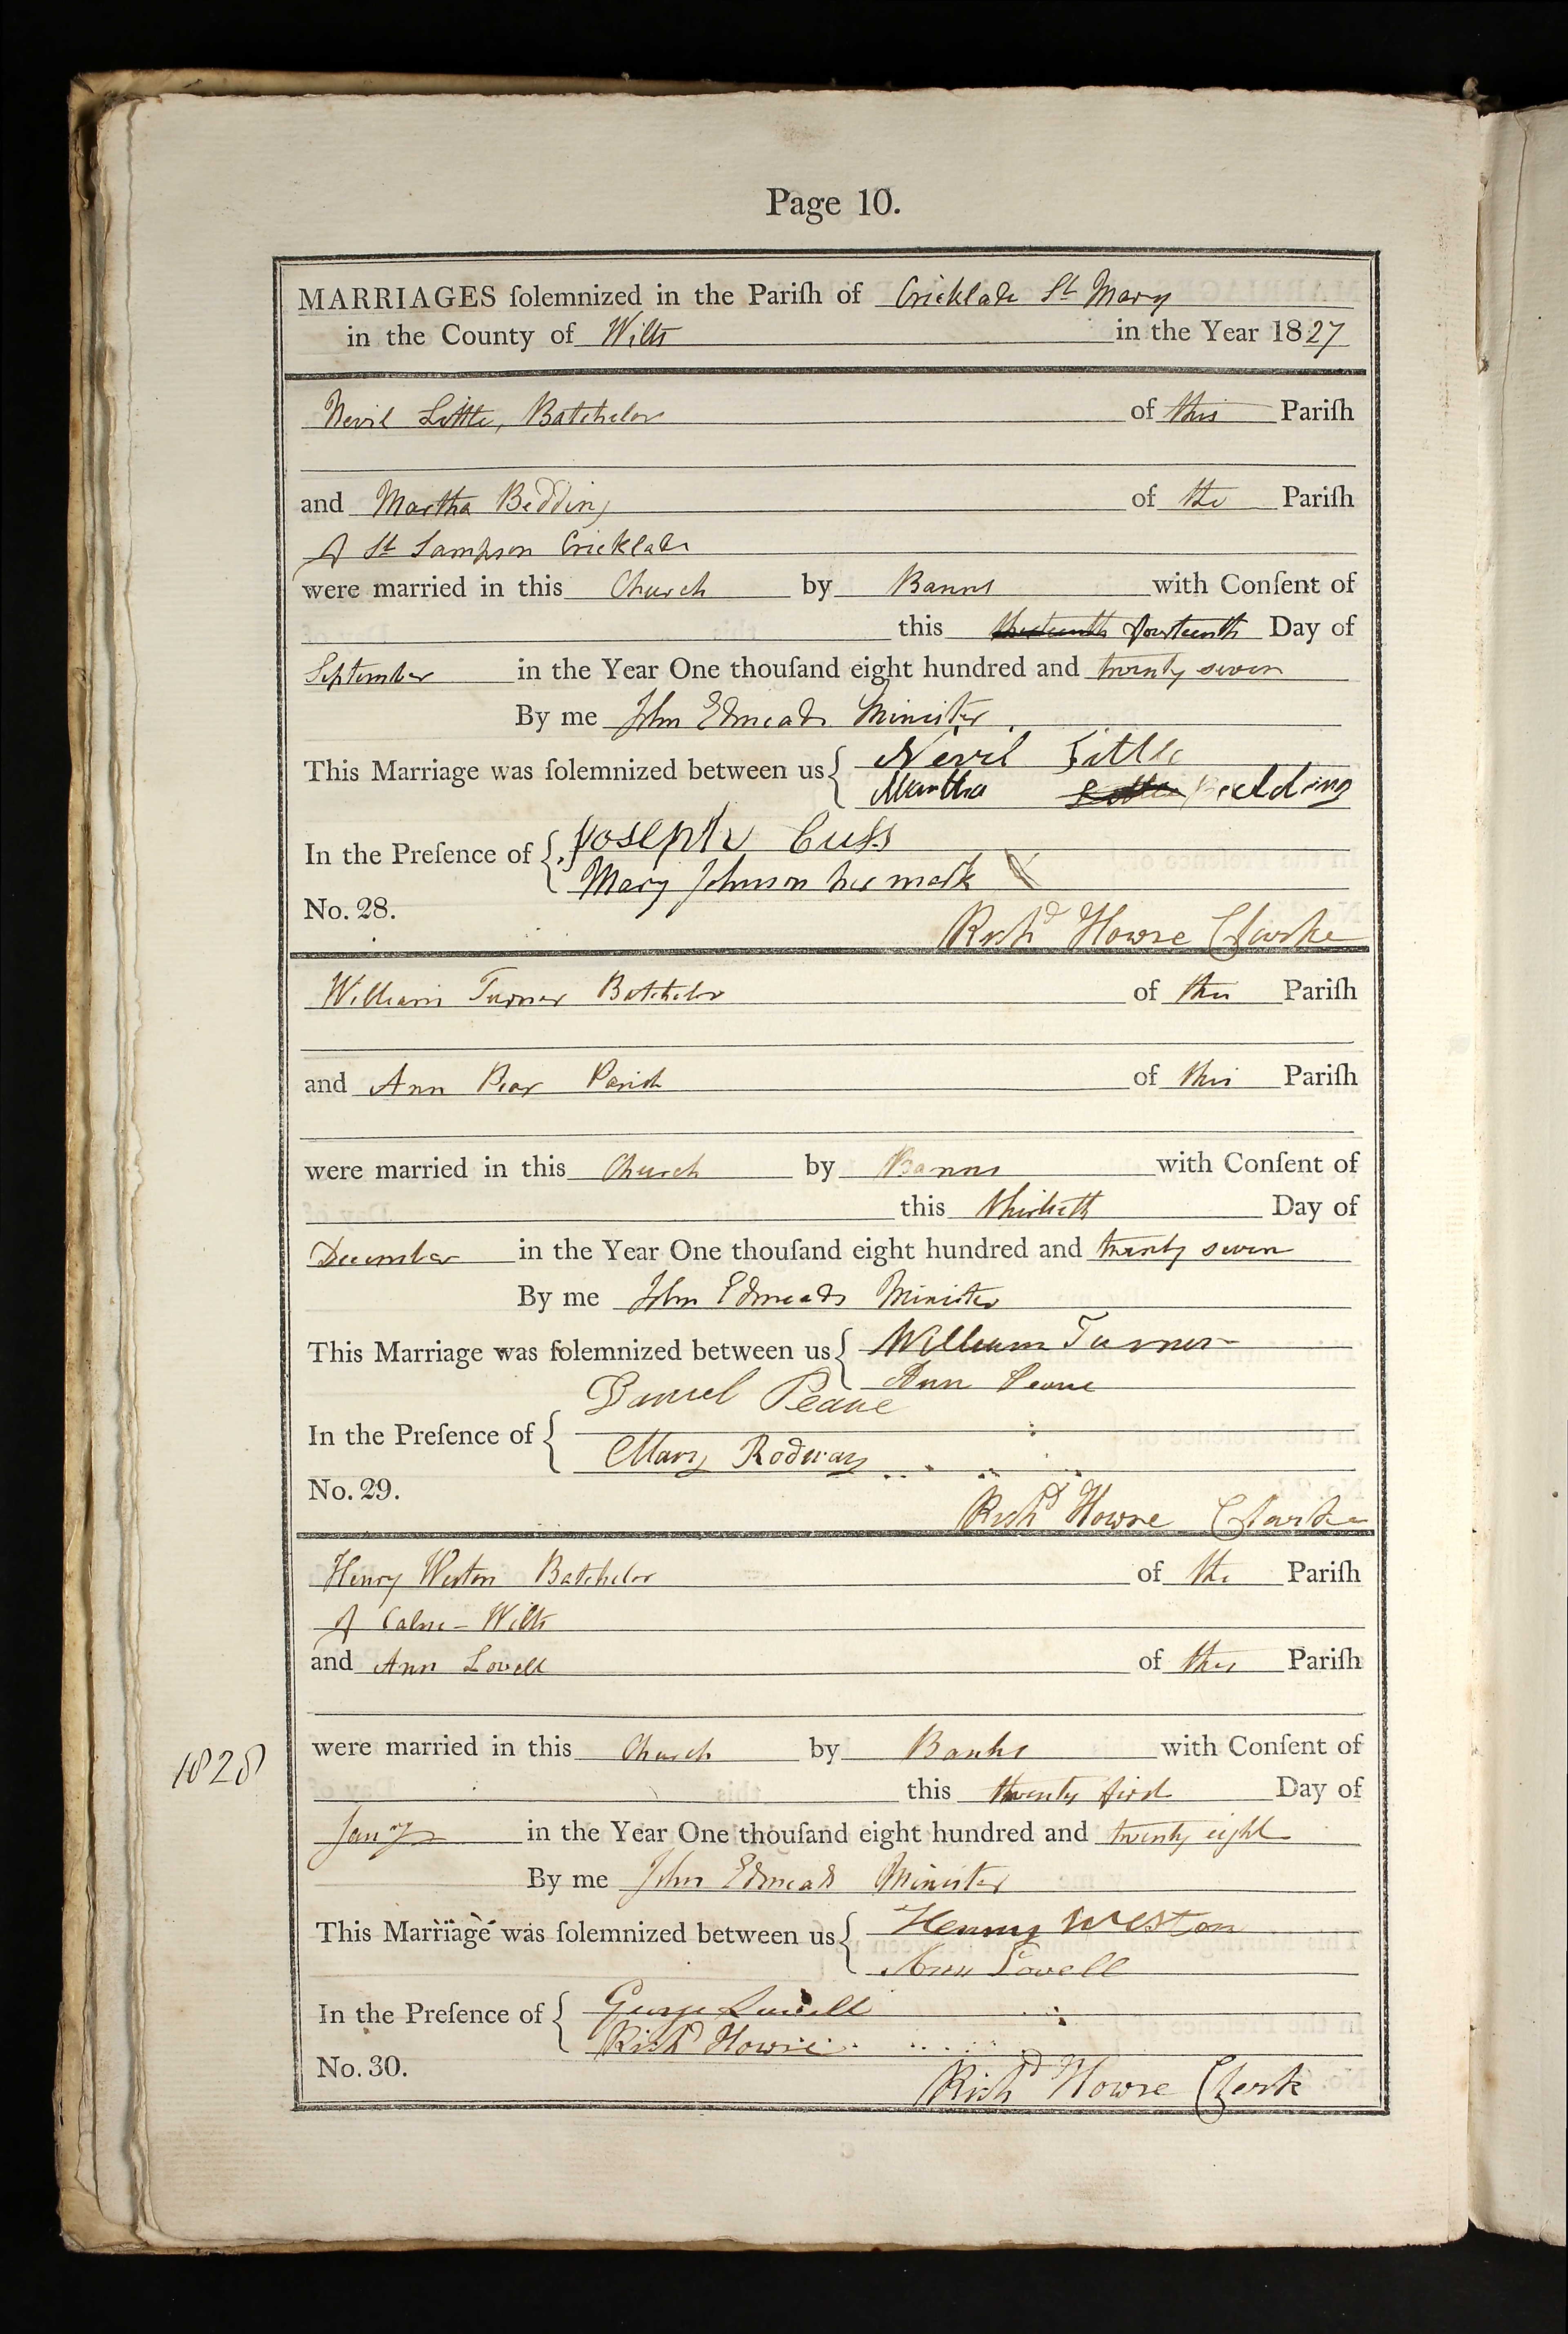 Page 10.
MARRIAGES ſolemnized in the Pariſh of Cricklade St Mary
in the County of Wilts in the Year 1827
Nevil Little, Batchelor of this Pariſh
and Martha Bedding of the Pariſh
of St Sampson Cricklade
were married in this Church by Banns with Conſent of
this thirteenth fourteenth Day of
September in the Year One thouſand eight hundred and twenty seven
By me John Edmeads Minister
This Marriage was ſolemnized between us { Nevil Little
Martha Little Bedding
In the Preſence of { Joseph Cuss
Mary Johnson her mark X
No. 28.
Richd Howse Clarke
William Turner Batchelor of this Pariſh
and Ann Parish of this Pariſh
were married in this Church by Banns with Conſent of
this thirtieth Day of
December in the Year One thouſand eight hundred and twenty seven
By me John Edmeads Minister
This Marriage was ſolemnized between us { William Turner
Ann
Daniel
In the Preſence of {
Mary Rodway
No. 29.
Richd Howse Clarke
Henry Weston Batchelor of the Pariſh
of Calne - Wilts
and Ann Lovell of this Pariſh
were married in this Church by Banns with Conſent of
1828
this twenty first Day of
Janry in the Year One thouſand eight hundred and twenty eight
By me John Edmeads Minister
This Marriage was ſolemnized between us { Henry Weston
Ann Lovell
In the Preſence of { George Lovell
Richd Howse
No. 30.
Richd Howse Clerk